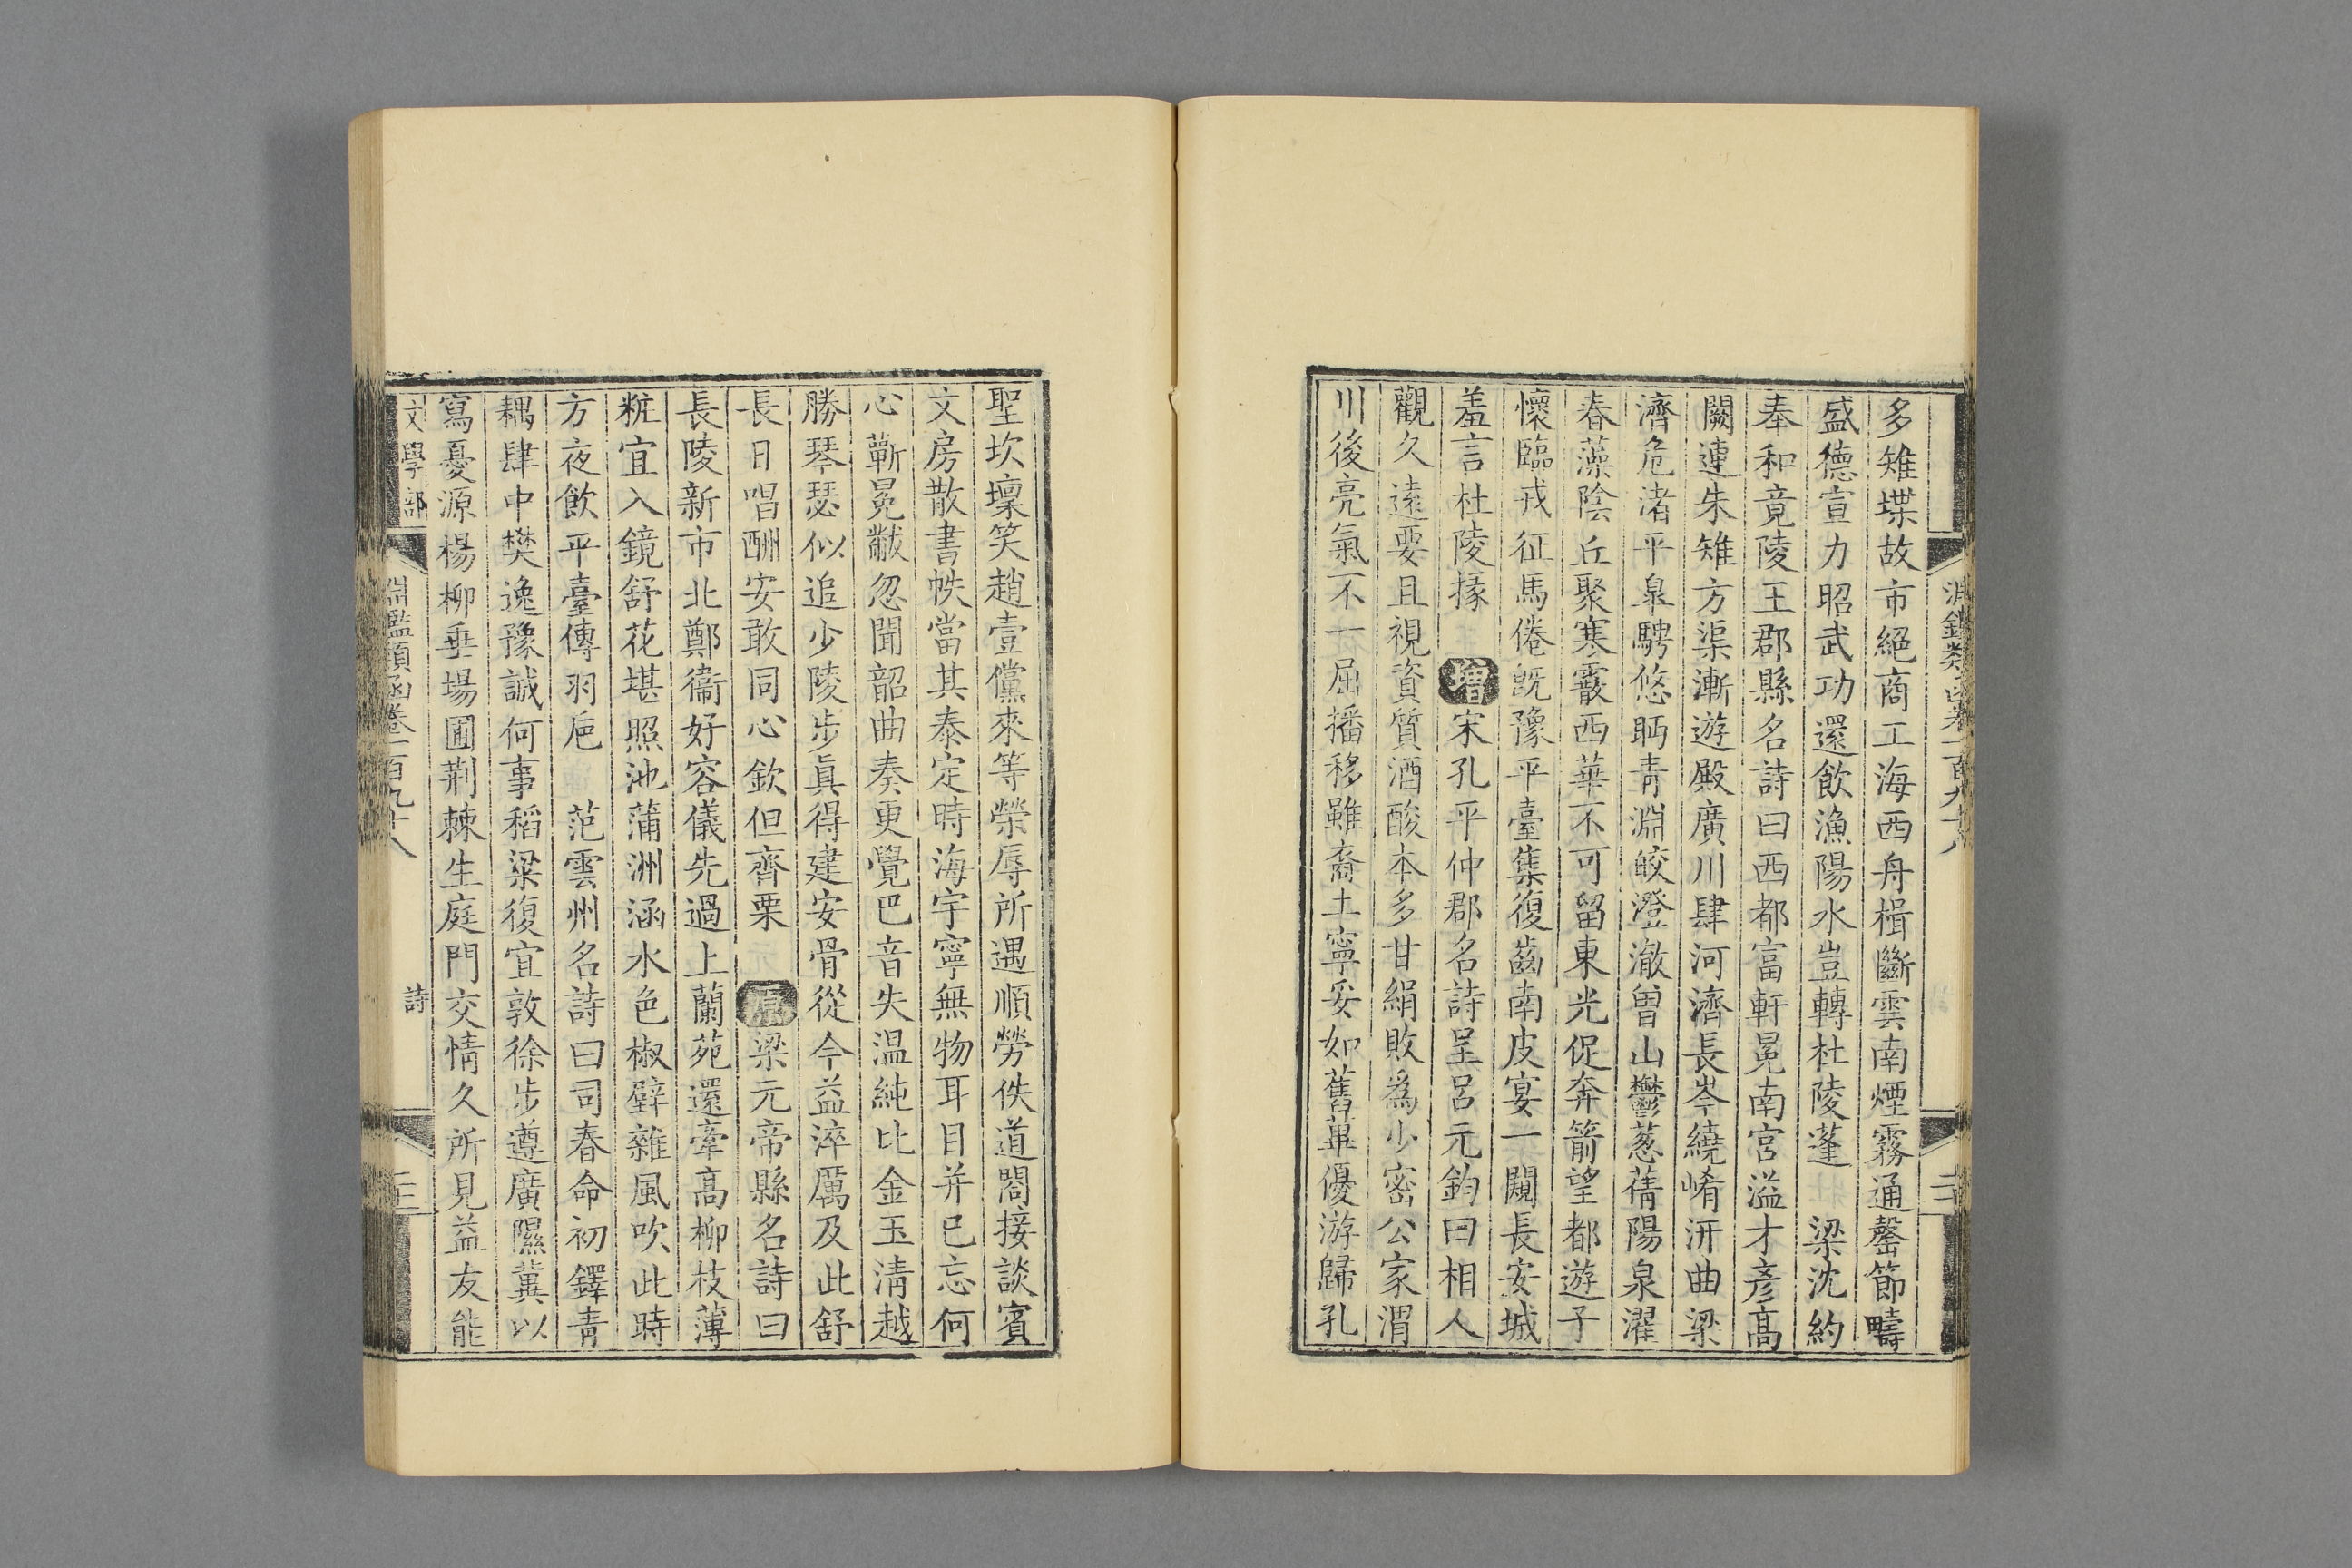 淵鑑類函卷一百九十八
多雉堞故市絕商工海西舟楫斷雲南煙霧通罄節疇
盛德宣力昭武功還飲漁陽水豈轉杜陵蓬 梁沈約
奉和竟陵王郡縣名詩曰西都富軒冕南宮溢才彥高
闕連朱雉方渠漸遊殿廣川肆河濟長岑繞崤汧曲梁
濟危渚平皋騁悠眄青淵皎澄澈曽山鬱蔥蒨陽泉濯
春藻陰丘聚寒霰西華不可留東光促奔箭望都遊子
懷臨戎征馬倦旣豫平臺集復齒南皮宴一闚長安城
羞言杜陵掾 增宋孔平仲郡名詩呈呂元鈞曰相人
觀久遠要且視資質酒酸本多甘絹敗為少密公家渭
川後亮氣不一屈播移雖裔土寧妥如舊蓽優游歸孔
聖坎壈笑趙壹儻來等榮辱所遇順勞佚道閤接談賓
文房散書帙當其泰定時海宇寧無物耳目并已忘何
心蘄冕黻忽聞韶曲奏更覺巴音失温純比金玉清越
勝琴瑟似追少陵步真得建安骨從今益淬厲及此舒
長日唱酬安敢同心欽但齊栗 原梁元帝縣名詩曰
長陵新市北鄭衞好容儀先過上蘭苑還牽高柳枝薄
粧宜入鏡舒花堪照池蒲洲涵水色椒壁雜風吹此時
方夜飲平臺傳羽巵 范雲州名詩曰司春命初鐸青
耦肆中樊逸豫誠何事稻粱復宜敦徐步遵廣隰冀以
寫憂源楊柳垂場圃荆棘生庭門交情久所見益友能
文學部 淵鑑類函卷一百九十八 詩